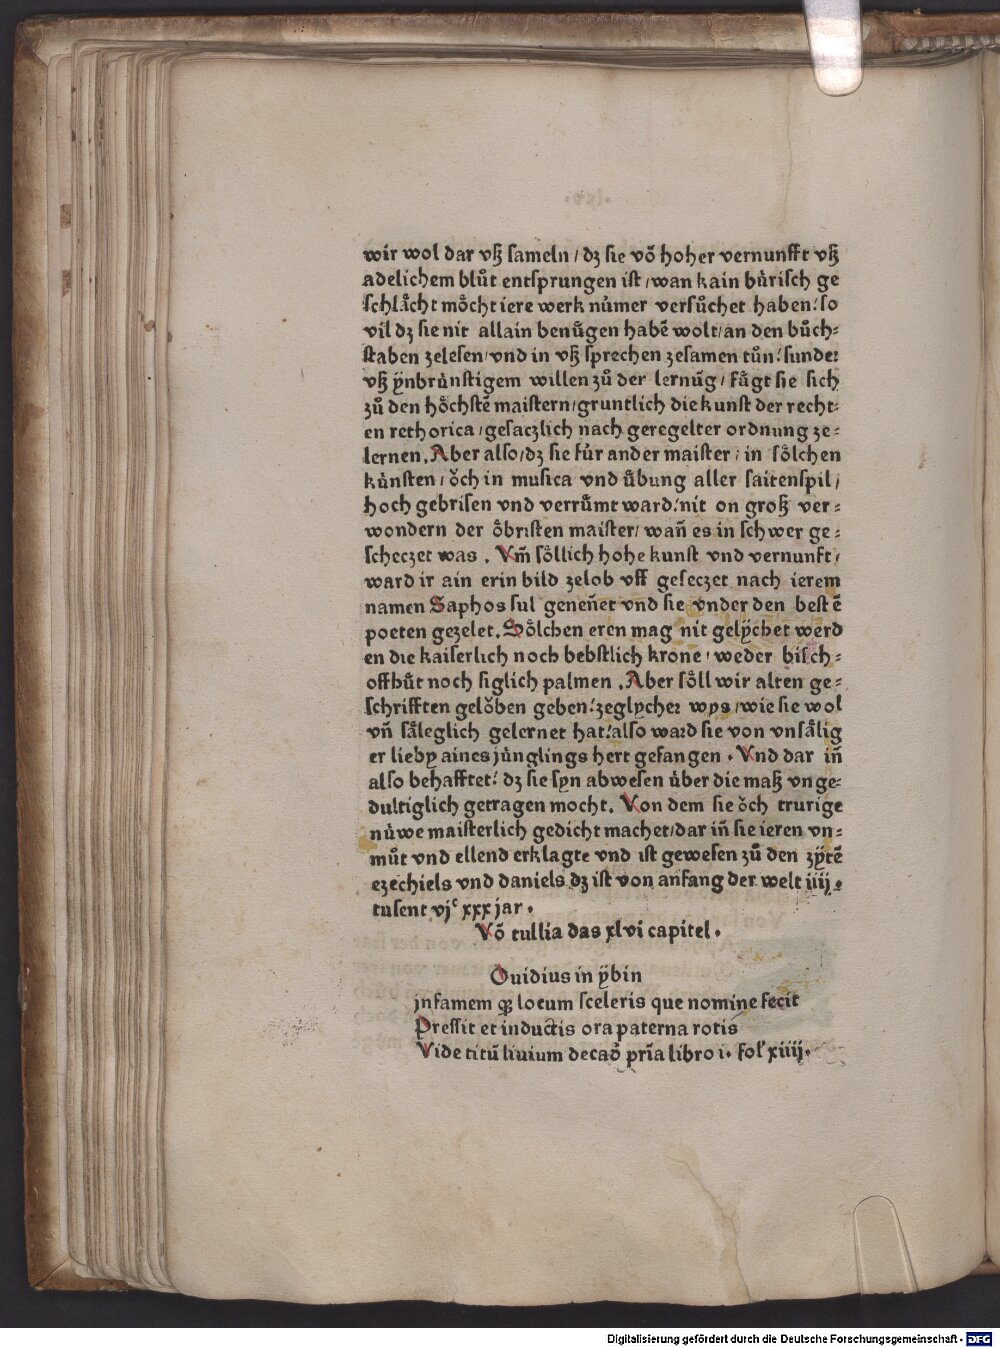 wir wol dar vß sameln / dz sie võ hoher vernunfft vß
adelichem blůt entsprungen ist / wan kain bürisch ge
schlächt möcht iere werk nümer versůchet haben / so
vil dz sie nit allain benůgen habẽ wolt / an den bůch⸗
staben zelesen / vnd in vß sprechen zesamen tůn / sunder
vß ynbrünstigem willen zů der lernũg / fågt sie sich
zů den höchstẽ maistern / gruntlich die kunst der recht⸗
en rethorica / gesaczlich nach geregelter ordnung ze⸗
lernen. Aber also / dz sie für ander maister / in sölchen
künsten / ǒch in musica vnd übung aller saitenspil /
hoch gebrisen vnd verrümt ward / nit on groß ver⸗
wondern der öbristen maister / wañ es in schwer ge⸗
scheczet was. Vm̃ söllich hohe kunst vnd vernunft /
ward ir ain erin bild zelob vff geseczet nach ierem
namen Saphos sul geneñet vnd sie vnder den bestẽ
poeten gezelet. Sölchen eren mag nit gelÿchet werd
en die kaiserlich noch bebstlich krone / weder bisch⸗
offhůt noch siglich palmen. Aber söll wir alten ge⸗
schrifften gelǒben geben / zeglycher wys / wie sie wol
vñ säleglich gelernet hat / also ward sie von vnsälig
er lieby aines jünglings hert gefangen. Vnd dar iñ
also behafftet / dz sie syn abwesen über die maß vnge⸗
dultiglich getragen mocht. Von dem sie ǒch trurige
nüwe maisterlich gedicht machet / dar iñ sie ieren vn⸗
můt vnd ellend erklagte vnd ist gewesen zů den zÿtẽ
ezechiels vnd daniels dz ist von anfang der welt iiij.
tusent vjᶜ xxx jar.
Võ tullia das xlvi capitel.
Ouidius in ÿbin
jnfamem qꝫ locum sceleris que nomine fecit
Pressit et inductis ora paterna rotis
Vide titũ liuium decad̾ pr̃ia libro i. fol̾ xiiij.
Digitalisierung gefördert durch die Deutsche Forschungsgemeinschaft - DFG